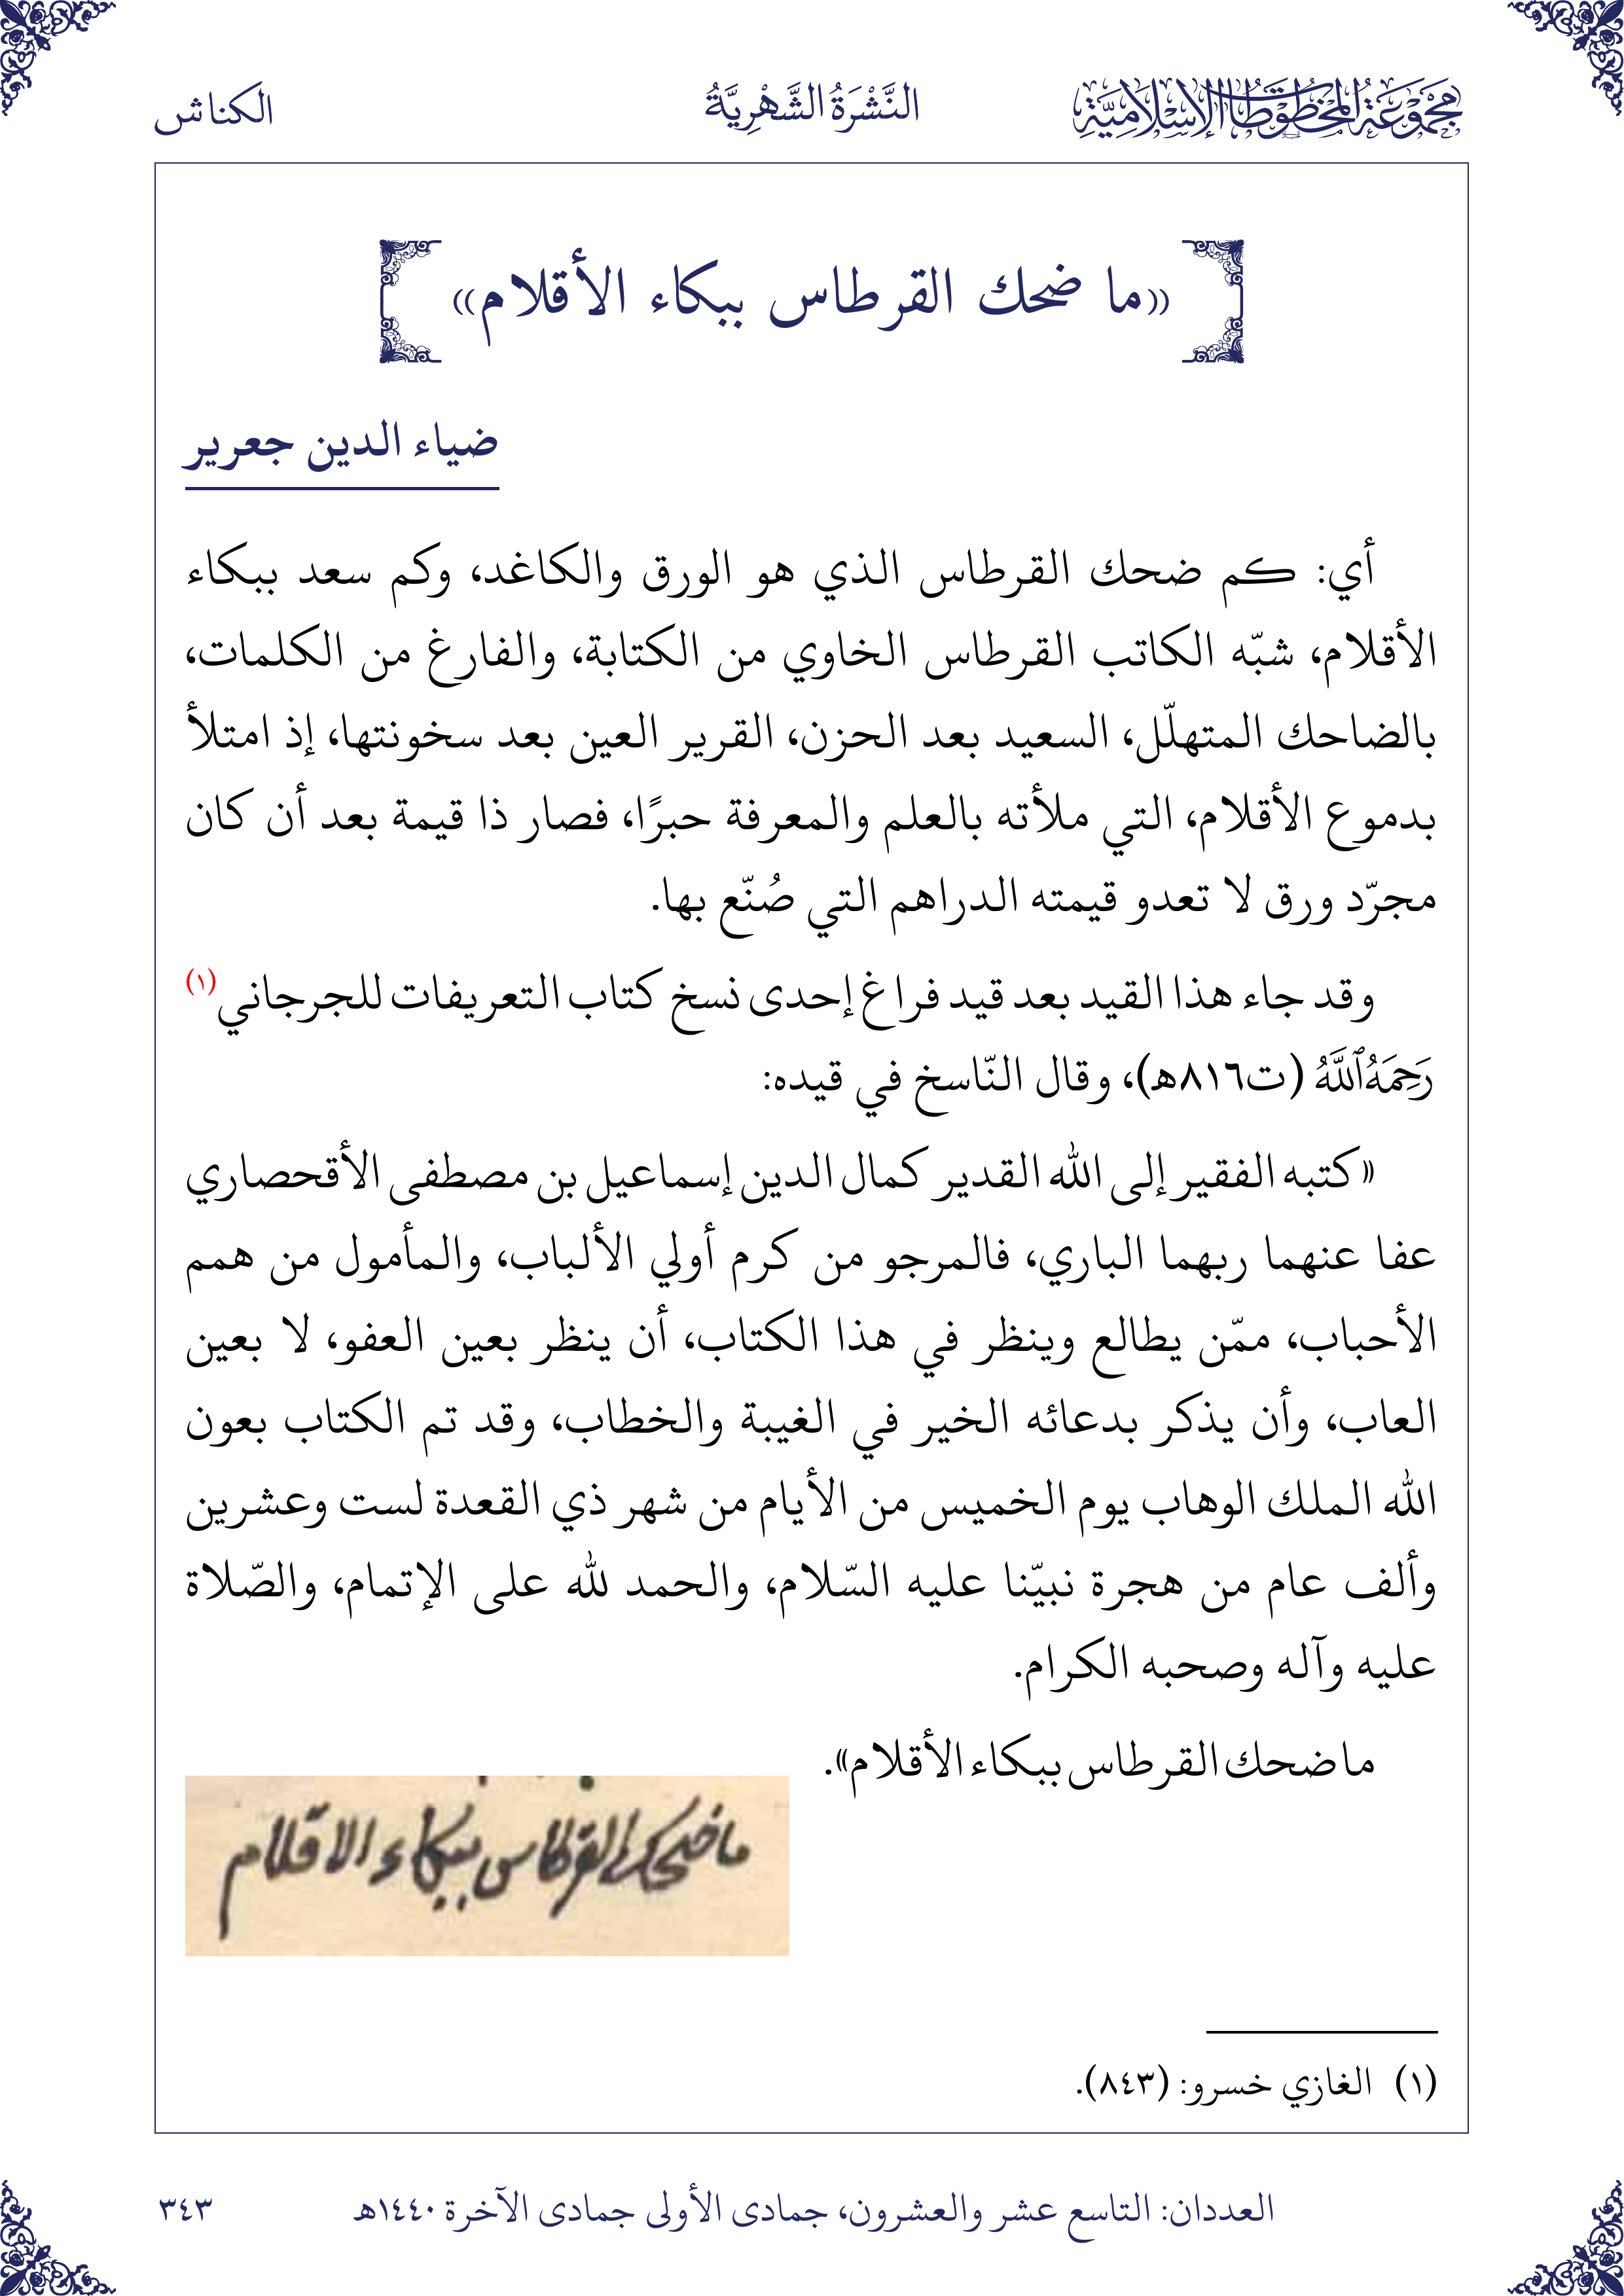 مَجْمُوعَةُ المَخْطُوطَاتِ الإِسْلَامِيَّةِ
النَّشْرَةُ الشَّهْرِيَّةُ
الكناش
«ما ضحك القرطاس ببكاء الأقلام»
ضياء الدين جعرير
أي: كم ضحك القرطاس الذي هو الورق والكاغد، وكم سعد ببكاء
الأقلام، شبّه الكاتب القرطاس الخاوي من الكتابة، والفارغ من الكلمات،
بالضاحك المتهلّل، السعيد بعد الحزن، القرير العين بعد سخونتها، إذ امتلأ
بدموع الأقلام، التي ملأته بالعلم والمعرفة حبرًا، فصار ذا قيمة بعد أن كان
مجرّد ورق لا تعدو قيمته الدراهم التي صُنّع بها.
وقد جاء هذا القيد بعد قيد فراغ إحدى نسخ كتاب التعريفات للجرجاني(١)
رَحِمَهُ ٱللَّهُ (ت٨١٦هـ)، وقال النّاسخ في قيده:
«كتبه الفقير إلى الله القدير كمال الدين إسماعيل بن مصطفى الأقحصاري
عفا عنهما ربهما الباري، فالمرجو من كرم أولي الألباب، والمأمول من همم
الأحباب، ممّن يطالع وينظر في هذا الكتاب، أن ينظر بعين العفو، لا بعين
العاب، وأن يذكر بدعائه الخير في الغيبة والخطاب، وقد تم الكتاب بعون
الله الملك الوهاب يوم الخميس من الأيام من شهر ذي القعدة لست وعشرين
وألف عام من هجرة نبيّنا عليه السّلام، والحمد لله على الإتمام، والصّلاة
عليه وآله وصحبه الكرام.
ما ضحك القرطاس ببكاء الأقلام».
ما ضحك القرطاس ببكاء الاقلام
(١) الغازي خسرو: (٨٤٣).
العددان: التاسع عشر والعشرون، جمادى الأولى جمادى الآخرة ١٤٤٠هـ
٣٤٣